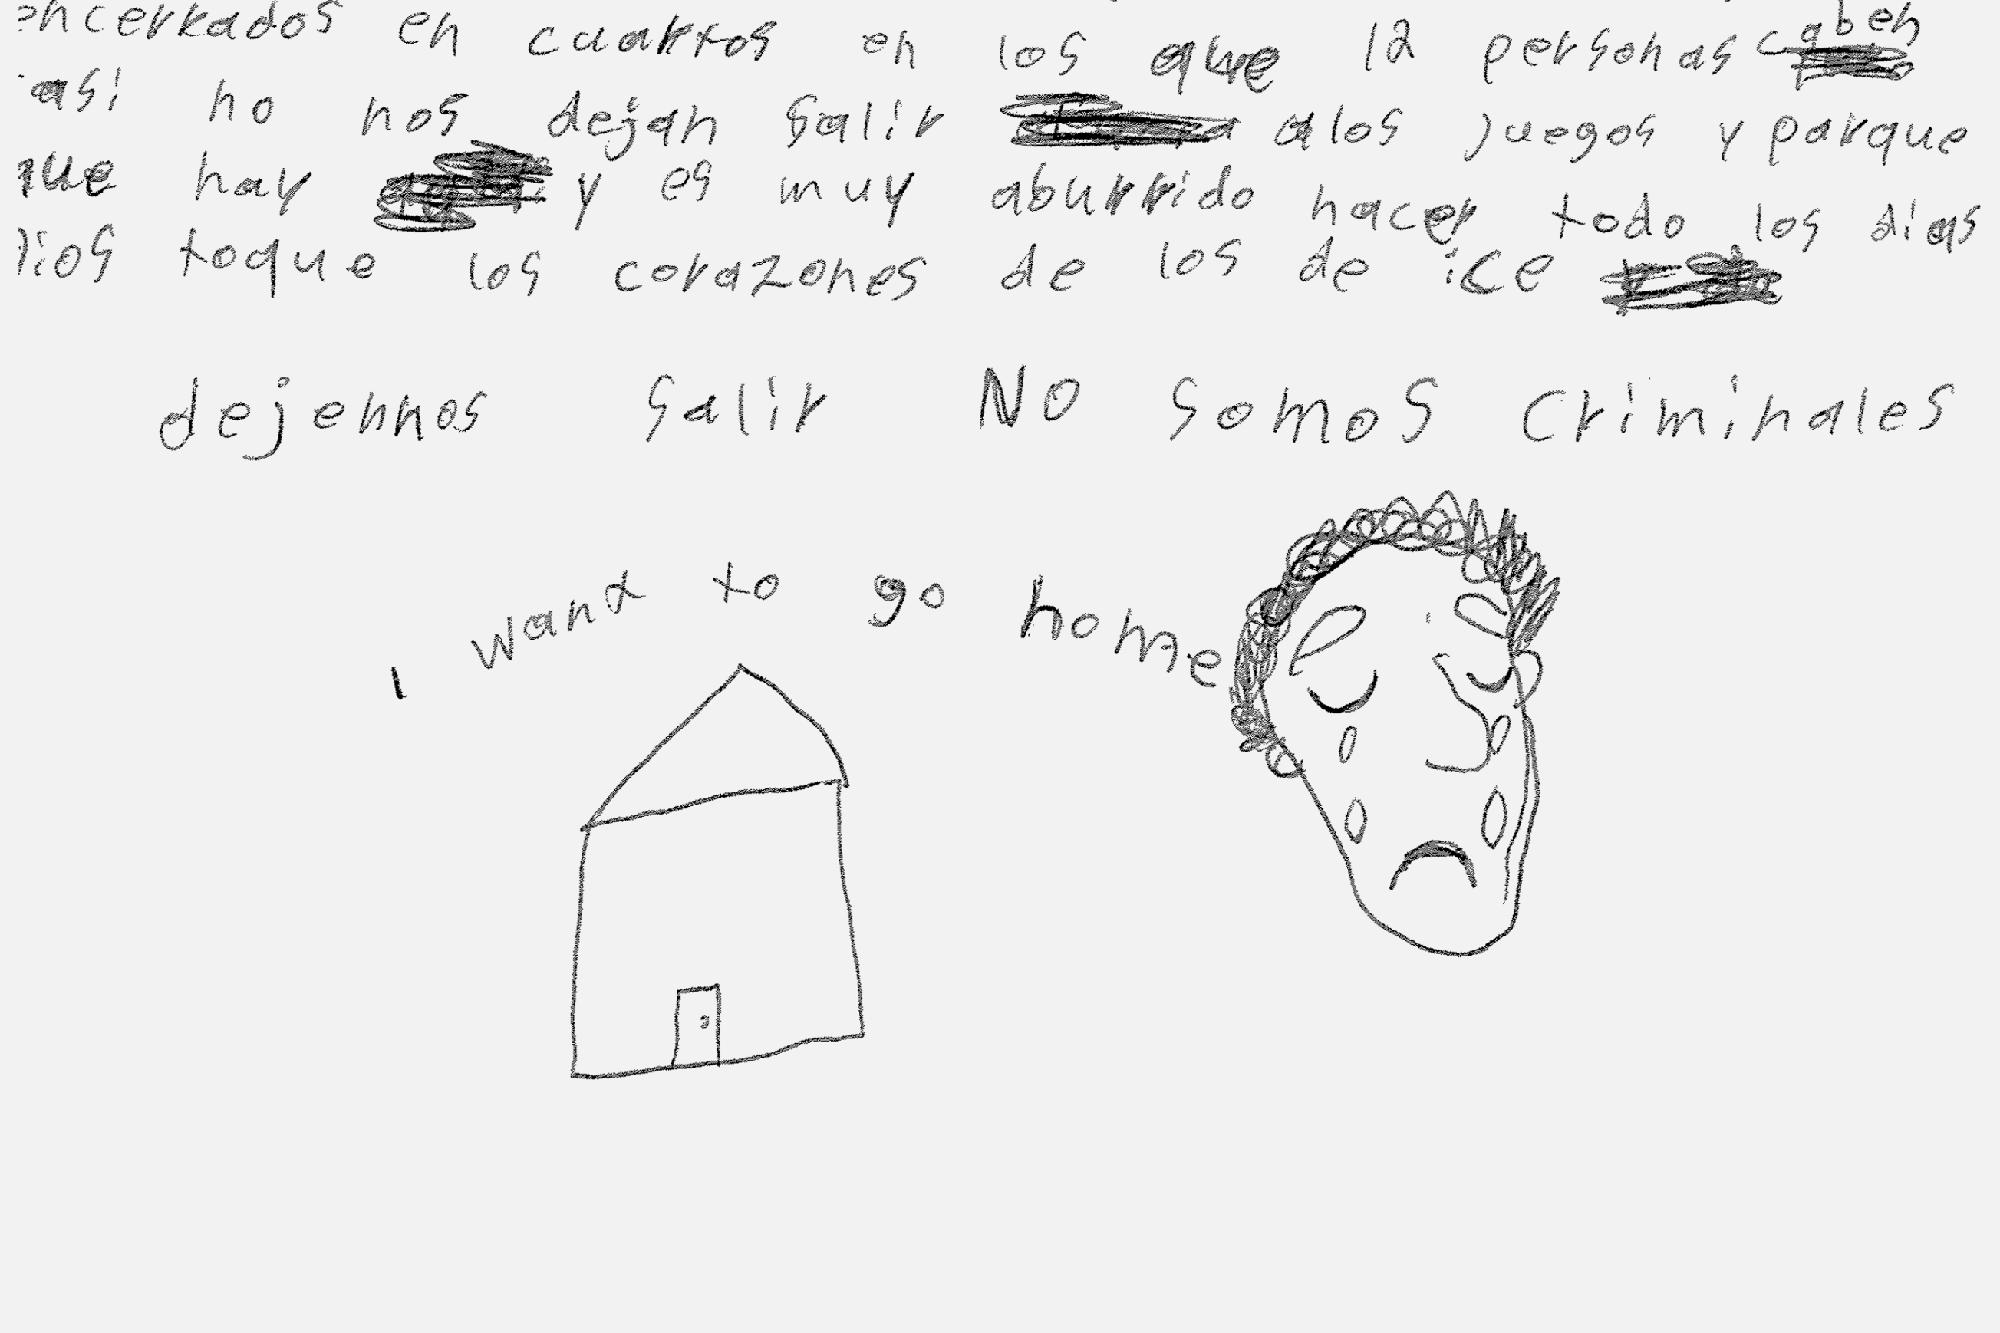 encerrados en cuartos en los que 12 personas caben
casi no nos dejan salir alos juegos y parque
que hay y es muy aburrido hacer todo los dias
dios toque los corazones de los de ice
dejennos salir NO somos criminales
I want to go home